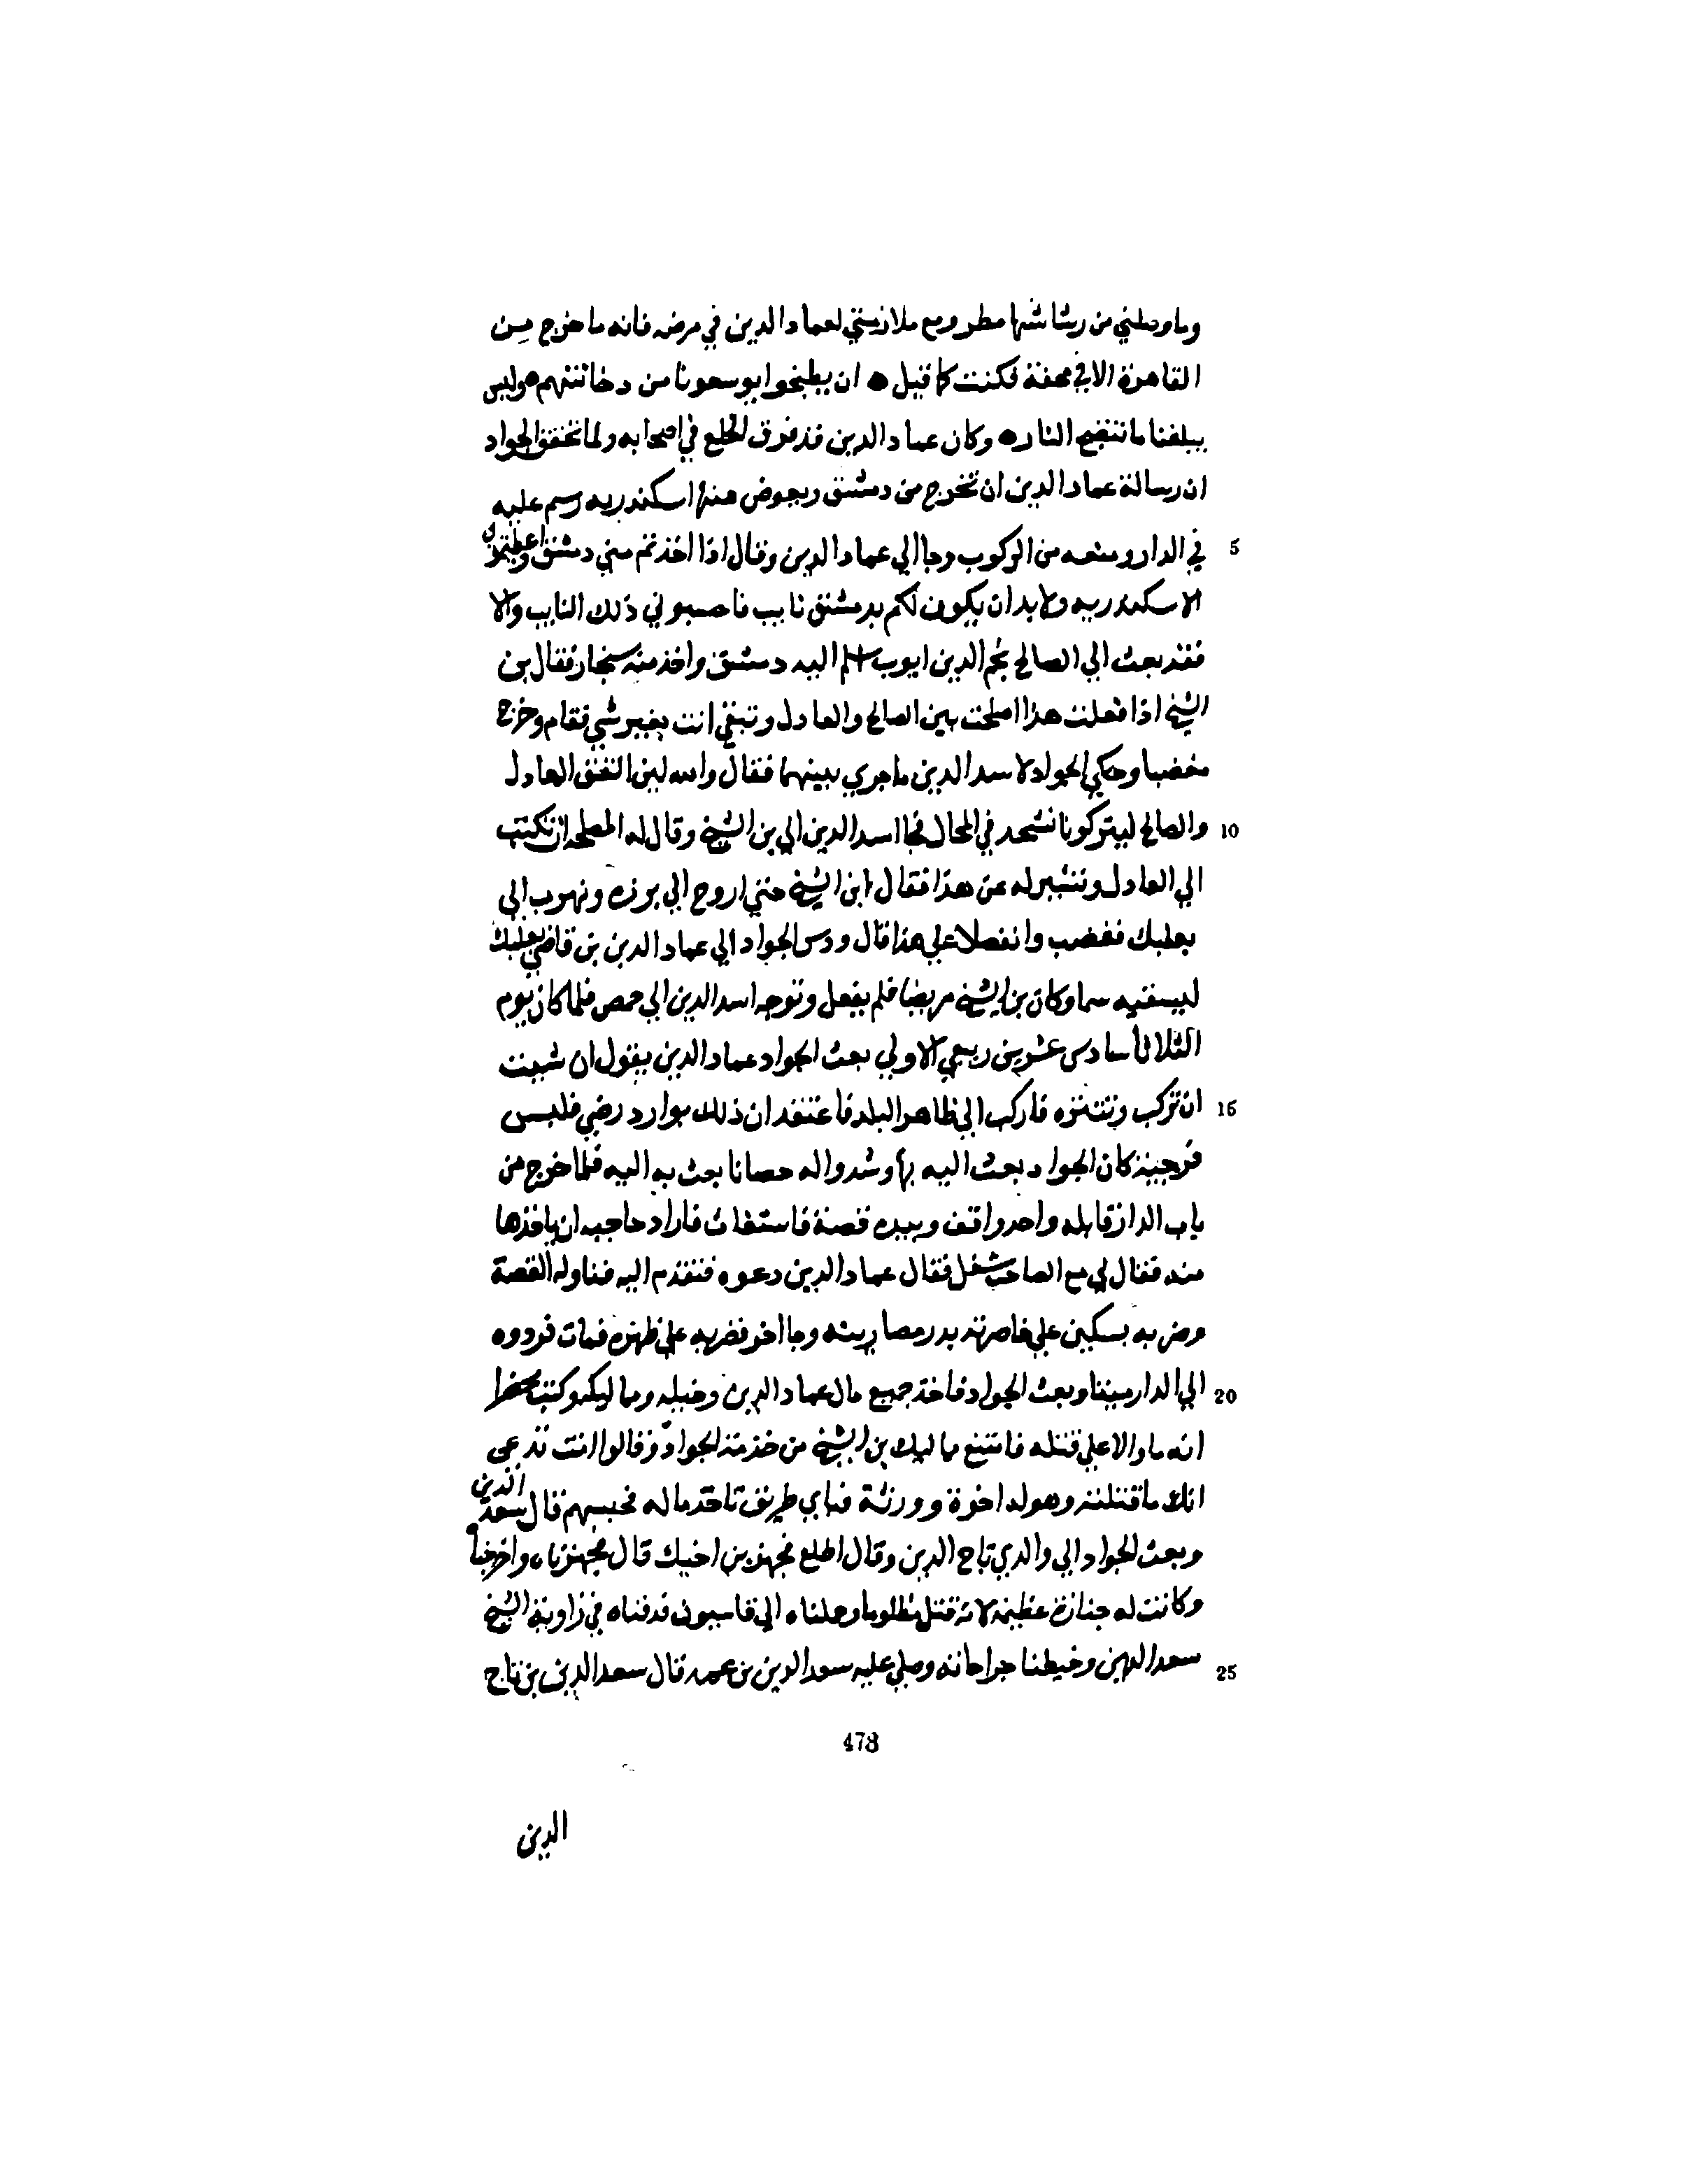 وما وصلني من رشاشها مطر ومع ملازمتي لعماد الدين في مرضه فانه ما خرج من
القاهرة الا في محفة فكنت كما قيل ه ان يطبخوا يوسعونا من دخانتهم ه وليس
يبلغنا ما تنضج النار ه وكان عماد الدين قد فرق الخلع في اصحابه ولما تحقق الجواد
ان رسالة عماد الدين ان تخرج من دمشق ويعوض عنها اسكندريه رسم عليه
5 في الدار ومنعه من الركوب وجا الي عماد الدين وقال اذا اخذتم مني دمشق واعطيتموني
الاسكندريه ولا بد ان يكون لكم بدمشق نايب فاحسبوني ذلك النايب والا
فقد بعث الي الصالح نجم الدين ايوب اسلم اليه دمشق واخذ منه سنجار فقال بن
الشيخ اذا فعلت هذا اصلحت بين الصالح والعادل وتبقي انت بغير شي فقام وخرج
مغضبا وحكي الجواد لاسد الدين ما جري بينهما فقال والله لين اتفق العادل
10 والصالح ليتركونا نشحد في المخال فجا اسد الدين الي بن الشيخ وقال له المصلحه ان تكتب
الي العادل وتشير له عن هذا فقال ابن الشيخ حتي اروح الي برزه ونهرب الي
بعلبك فغضب وانفصلا علي هذا قال ودس الجواد الي عماد الدين بن قاضي بعلبك
ليسقيه سما وكان بن الشيخ مريضا فلم يفعل وتوجه اسد الدين الي حمص فلما كان يوم
الثلاثا سادس عشرين ربيعي الاولي بعث الجواد عماد الدين يقول ان شيت
15 ان تركب وتتنزه فاركب الي ظاهر البلد فاعتقد ان ذلك بوارد رضي فلبس
فرجيه كان الجواد بعث اليه بها وشدوا له حصانا بعث به اليه فلما خرج من
باب الدار قابله واحد واقف وبيده قصة فاستغاث فاراد حاجبه ان ياخذها
منه فقال لي مع الصاحب شغل فقال عماد الدين دعوه فتقدم اليه فناوله القصة
وضربه بسكين علي خاصرته بدر مصارينه وجا اخر فضربه علي ظهره فمات فردوه
20 الي الدار ميتا وبعث الجواد فاخذ جميع مال عماد الدين وخيله ومماليكه وكتب محضرا
انه ما والا علي قتله فامتنع مماليك بن الشيخ من خدمة الجواد وقالوا انت تدعي
انك ما قتلته وهو له اخوة وورثة فباي طريق تاخذ ماله فحبسهم قال سعد الدين
وبعث الجواد الي والدي تاج الدين وقال اطلع فجهز بن اخيك قال فجهزناه واخرجناه
وكانت له جنازة عظيمه لانه قتل مظلوما وحملناه الي قاسيون فدفناه في زاوية الشيخ
25 سعد الدين وخيطنا جراحاته وصلي عليه سعد الدين بن عمه قال سعد الدين بن تاج
478
الدين